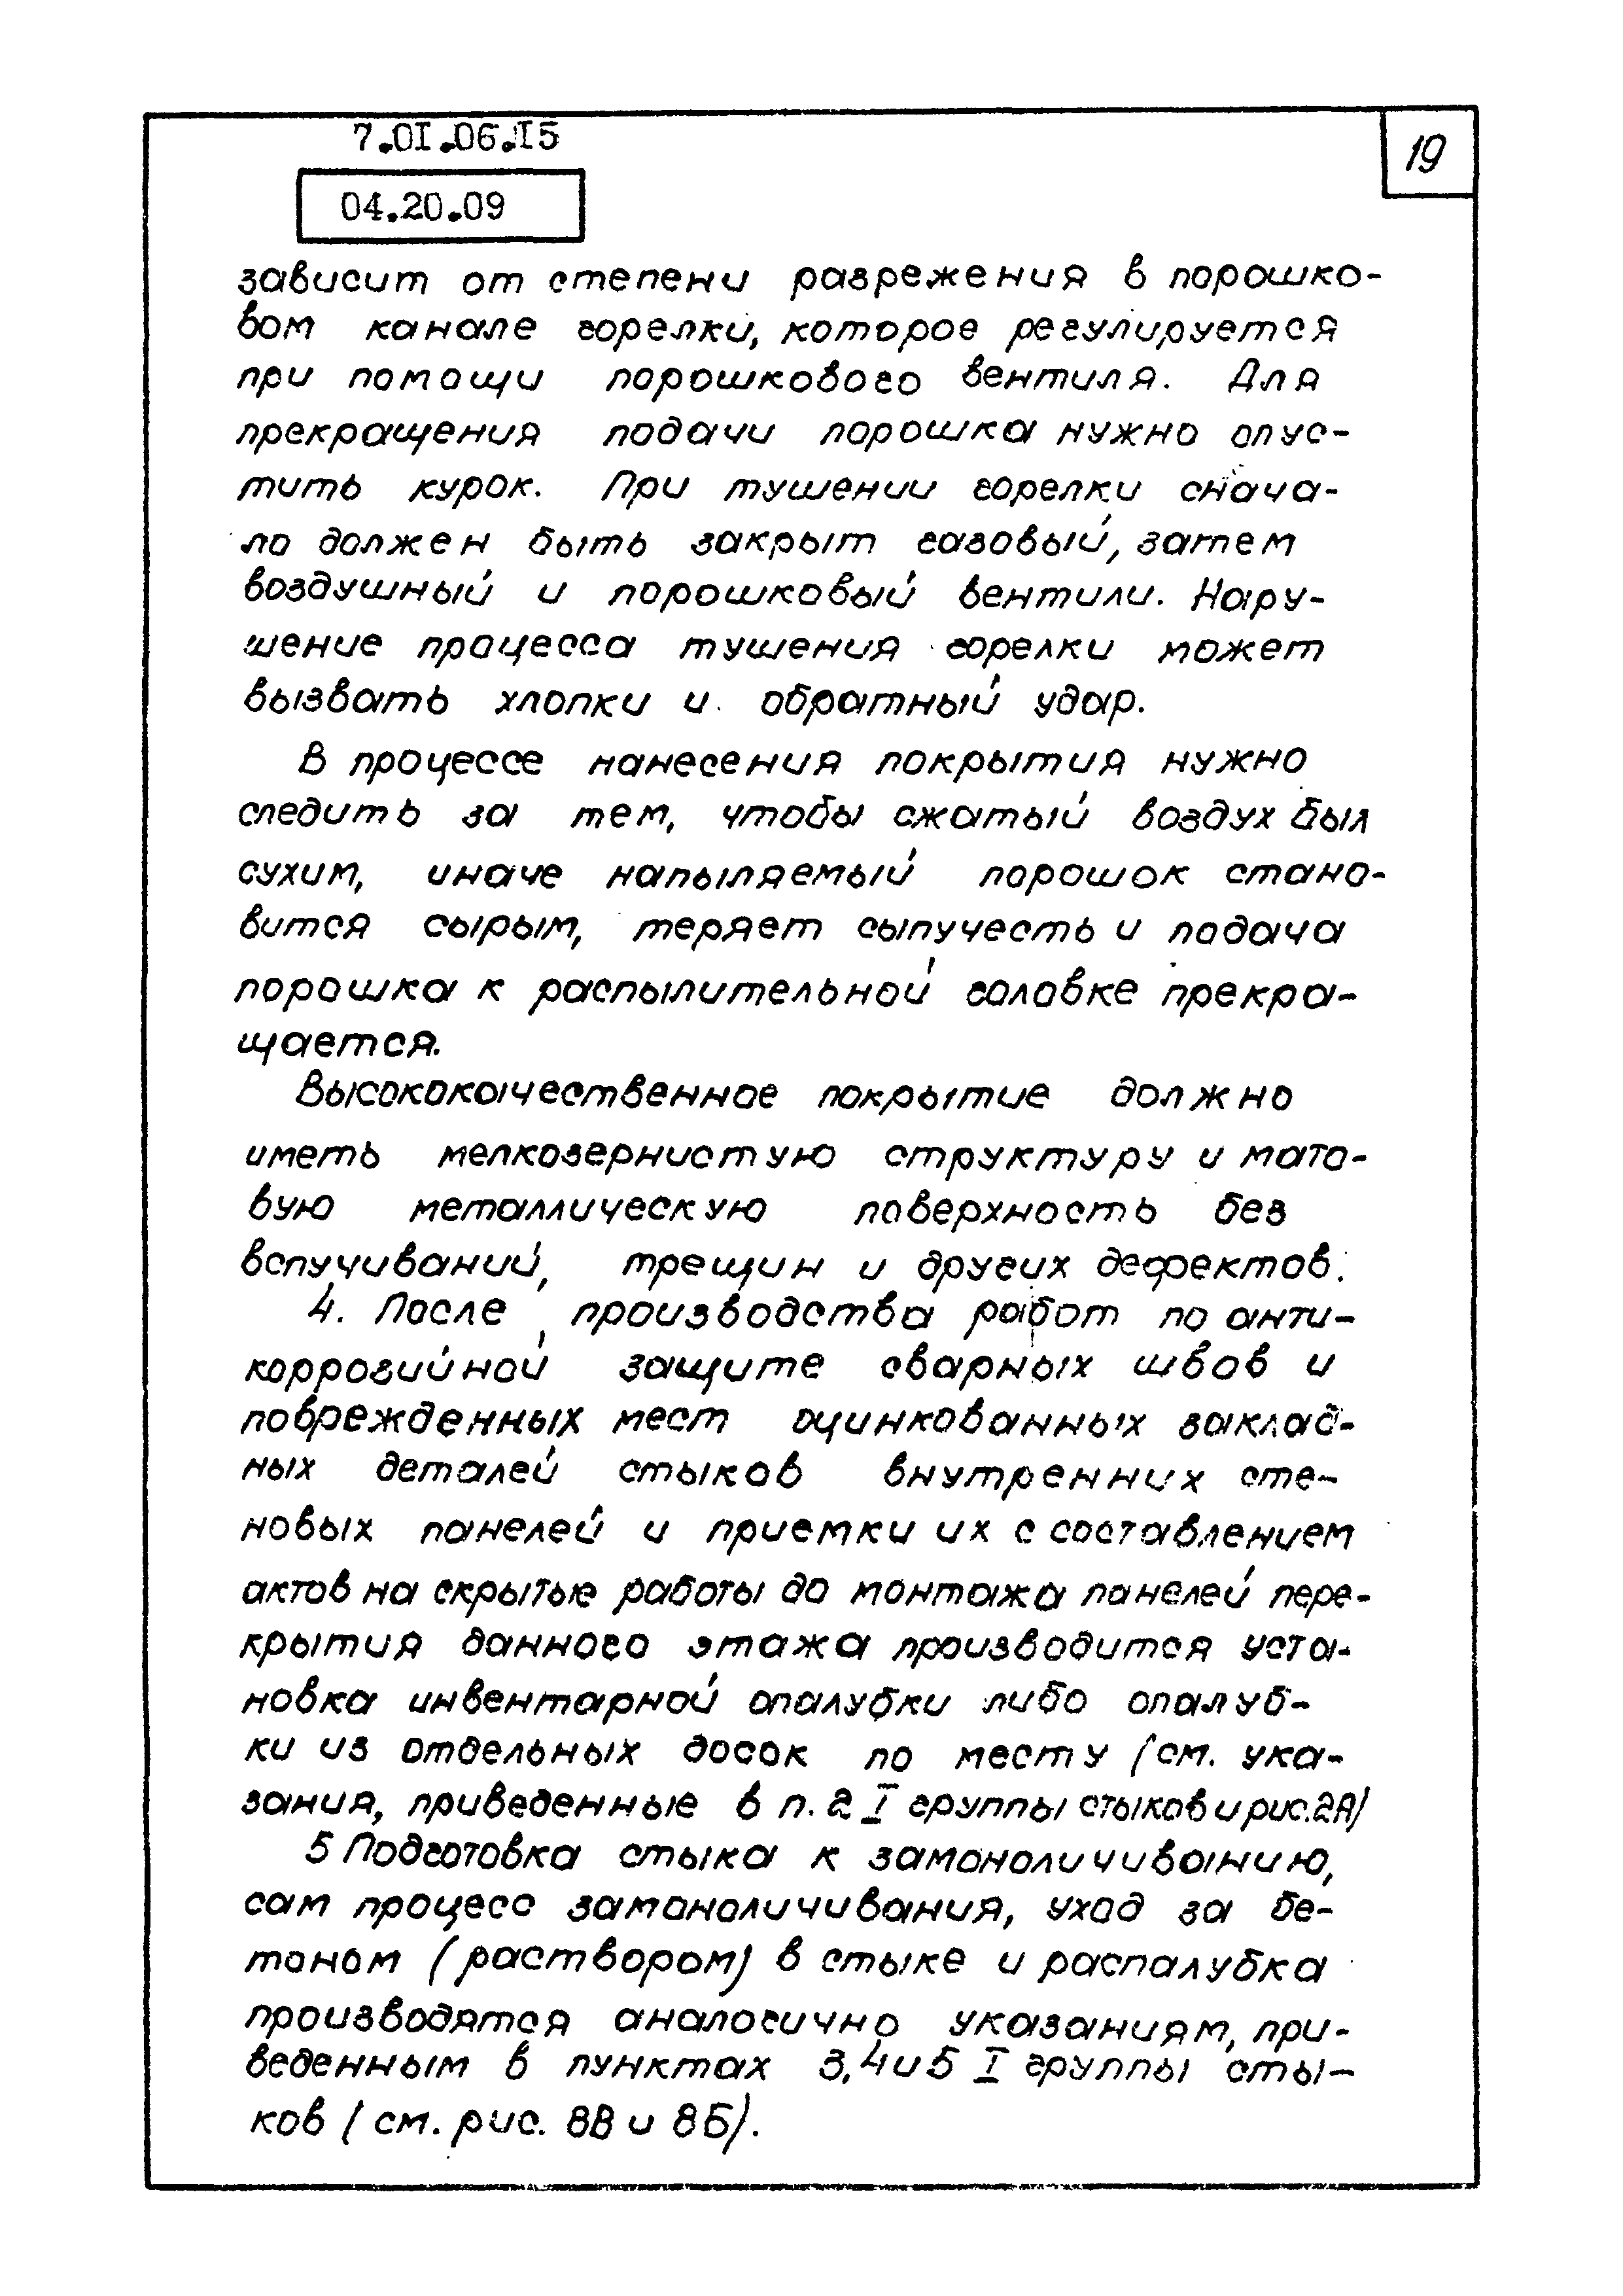 7.01.06.15
19
04.20.09
зависит от степени разрежения в порошко-
вом канале горелки, которое регулируется
при помощи порошкового вентиля. Для
прекращения подачи порошка нужно опус-
тить курок. При тушении горелки снача-
ла должен быть закрыт газовый, затем
воздушный и порошковый вентили. Нару-
шение процесса тушения горелки может
вызвать хлопки и обратный удар.
В процессе нанесения покрытия нужно
следить за тем, чтобы сжатый воздух был
сухим, иначе напыляемый порошок стано-
вится сырым, теряет сыпучесть и подача
порошка к распылительной головке прекра-
щается.
Высококачественное покрытие должно
иметь мелкозернистую структуру и мато-
вую металлическую поверхность без
вспучиваний, трещин и других дефектов.
4. После производства работ по анти-
коррозийной защите сварных швов и
поврежденных мест оцинкованных заклад-
ных деталей стыков внутренних сте-
новых панелей и приемки их с составлением
актов на скрытые работы до монтажа панелей пере-
крытия данного этажа производится уста-
новка инвентарной опалубки либо опалуб-
ки из отдельных досок по месту (см. ука-
зания, приведенные в п. 2 I группы стыков и рис. 2А)
5 Подготовка стыка к замоноличиванию,
сам процесс замоноличивания, уход за бе-
тоном (раствором) в стыке и распалубка
производятся аналогично указаниям, при-
веденным в пунктах 3,4 и 5 I группы сты-
ков (см. рис. 8В и 8Б).